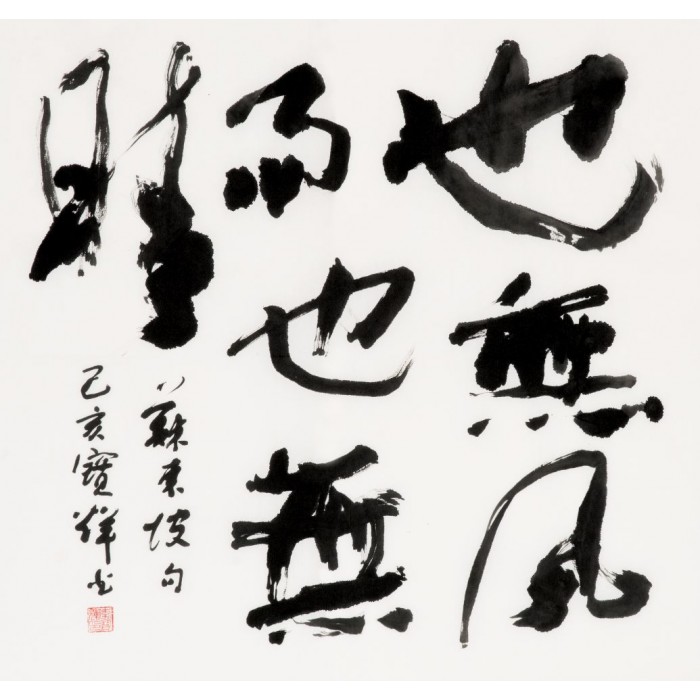 也無風
雨也無
晴
蘇東坡句
己亥寶輝書